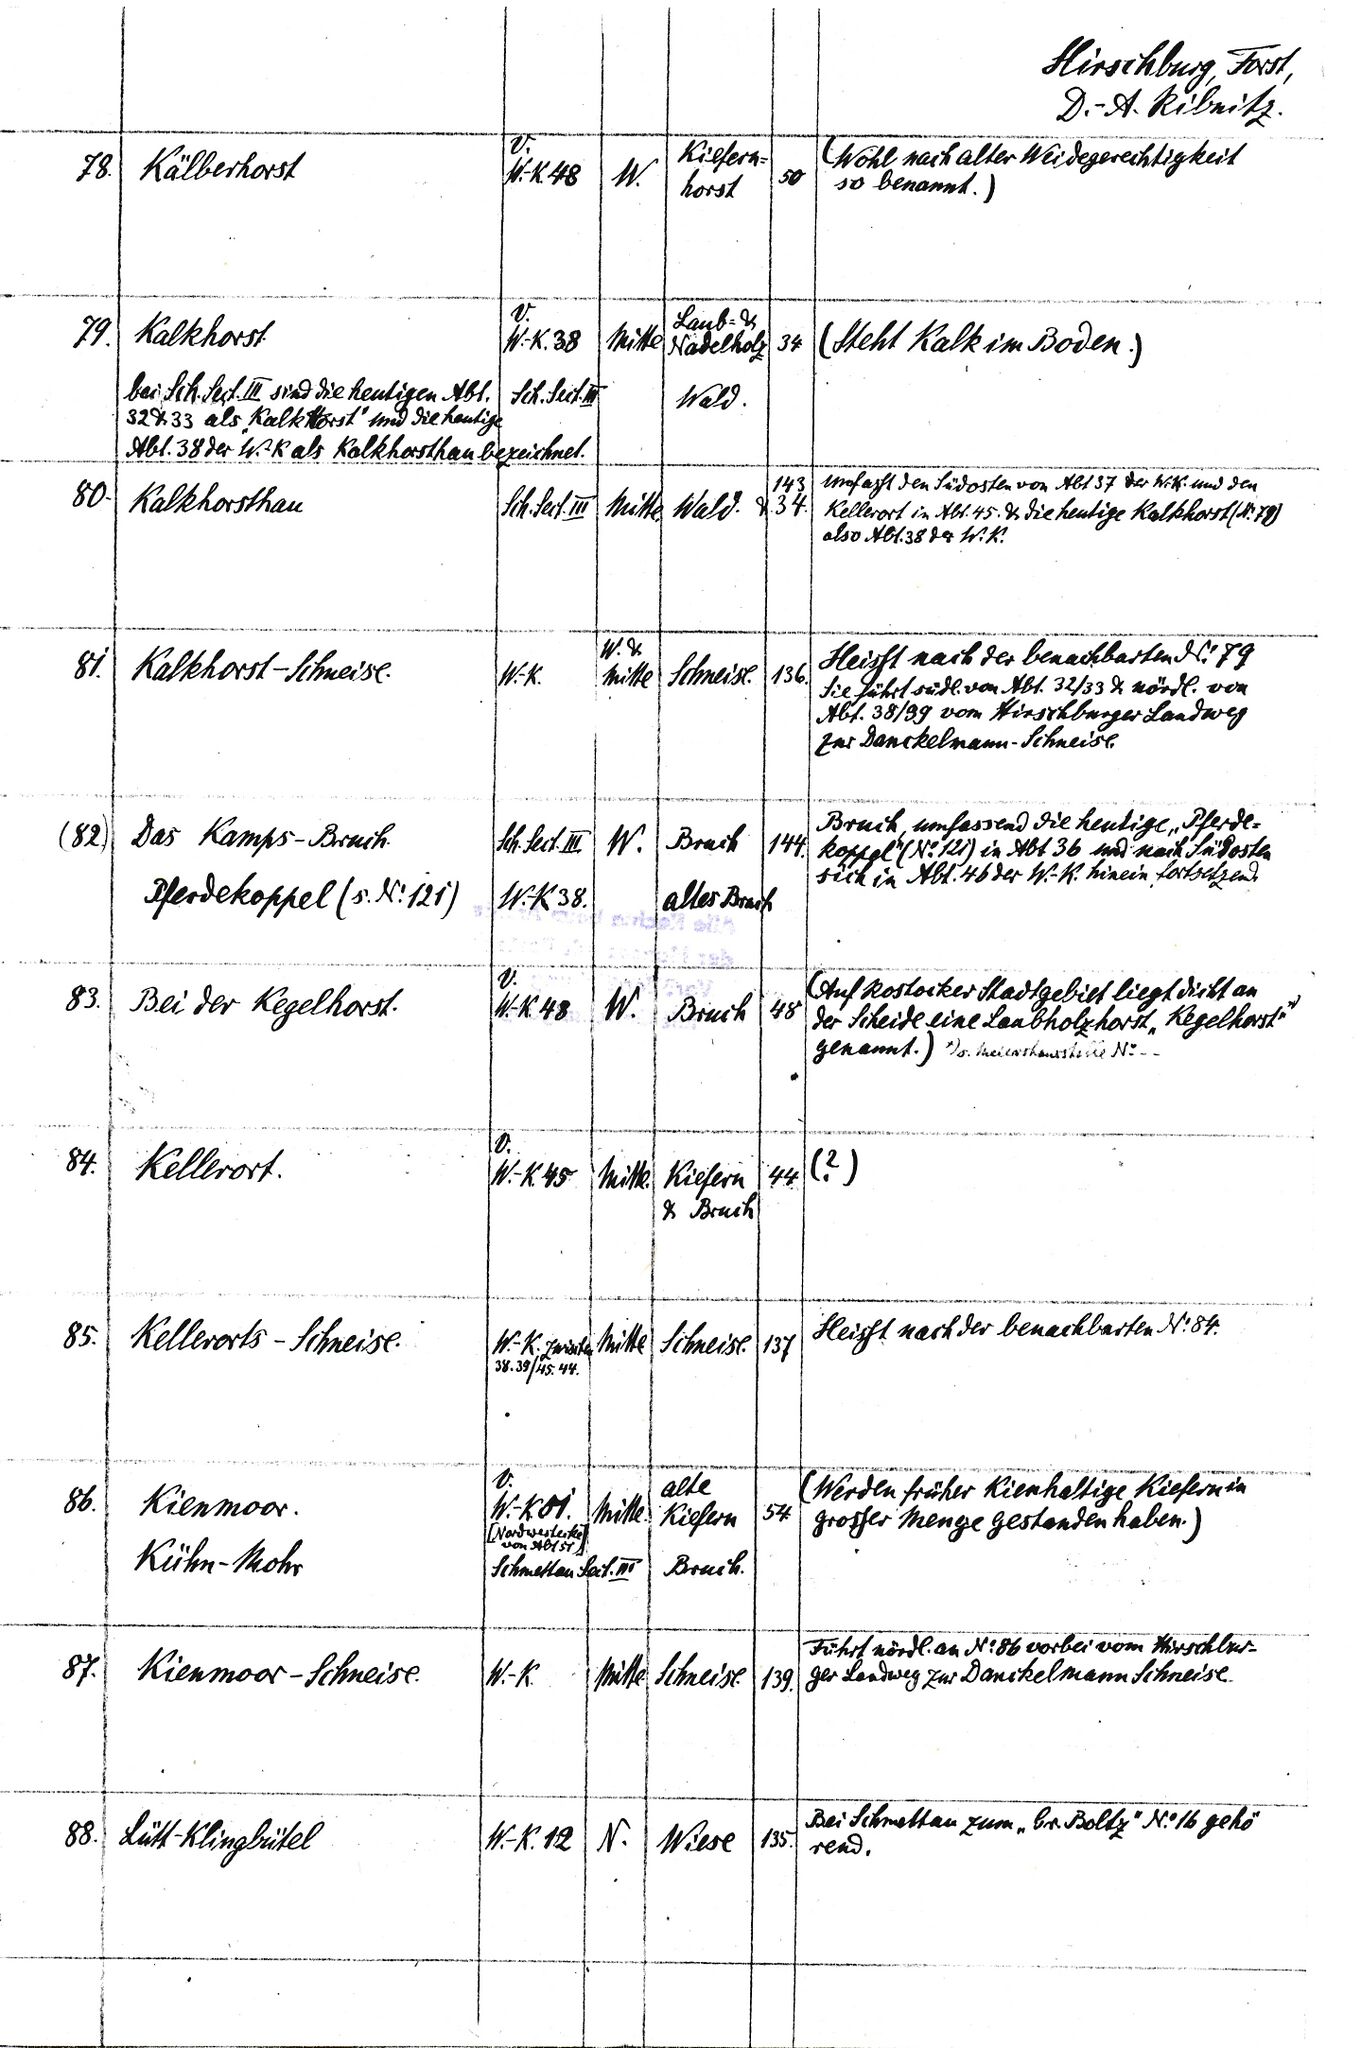 Hirschburg, Forst,
D.-A. Ribnitz.
78. Kälberhorst V. W.-K. 48 W. Kiefern=
horst 50 (Wohl nach alter Weidegerechtigkeit
so benannt.)
79. Kalkhorst V. W.-K. 38 Mitte Laub= &
Nadelholz 34 (Steht Kalk im Boden.)
bei Sch. Sect. III sind die heutigen Abt. Sch. Sect. III Wald.
32 & 33 als „Kalk Horst" und die heutige
Abt. 38 der W.-K als Kalkhorsthau bezeichnet.
80. Kalkhorsthau Sch. Sect. III Mitte Wald. 143
& 34. Umfaßt den Südosten von Abt 37 der W.K. und den
Kellerort in Abt. 45. & die heutige Kalkhorst (N: 79)
also Abt. 38 der W.K.
81. Kalkhorst-Schneise. W.-K. W. &
Mitte Schneise. 136. Heißt nach der benachbarten N: 79
Sie führt südl. von Abt. 32/33 & nördl. von
Abt. 38/39 vom Hirschburger Landweg
zur Danckelmann-Schneise.
(82) Das Kamps-Bruch. Sch. Sect. III W. Bruch 144. Bruch, umfassend die heutige „Pferde=
koppel" (N: 121) in Abt 36 und nach Südosten
sich in Abt. 46 der W.-K. hinein fortsetzend.
Pferdekoppel (s. N: 121) W.-K 38. altes Bruch
83. Bei der Kegelhorst. V. W.-K 48 W. Bruch 48 (Auf Rostocker Stadtgebiet liegt dicht an
der Scheide eine Laubholzhorst „Kegelhorst" *)
genannt.) *) s. N: --
84. Kellerort. V. W.-K 45 Mitte. Kiefern
& Bruch 44 (?)
85. Kellerorts-Schneise. W.-K. zwischen
38.39/45.44. Mitte Schneise. 137 Heißt nach der benachbarten N: 84.
86. Kienmoor. V. W.-K 51.
[Nordwestecke
von Abt 51] Mitte. alte
Kiefern 54 (Werden früher kienhaltige Kiefern in
grosser Menge gestanden haben.)
Kühn-Mohr Schmettau Sect. III Bruch.
87. Kienmoor-Schneise. W.-K. Mitte Schneise. 139. Führt nördl. an N: 86 vorbei vom Hirschbur-
ger Landweg zur Danckelmann Schneise.
88. Lütt-Klingbütel W.-K. 12 N. Wiese 135. Bei Schmettau zum „Gr. Boltz" N: 16 gehö
rend.